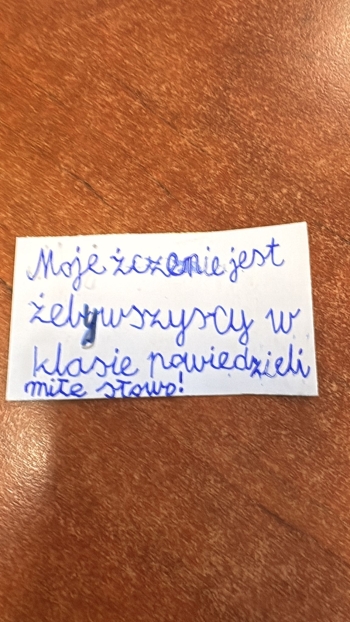 Moje żczenie jest
żeby wszyscy w
klasie powiedzieli
miłe słowo!